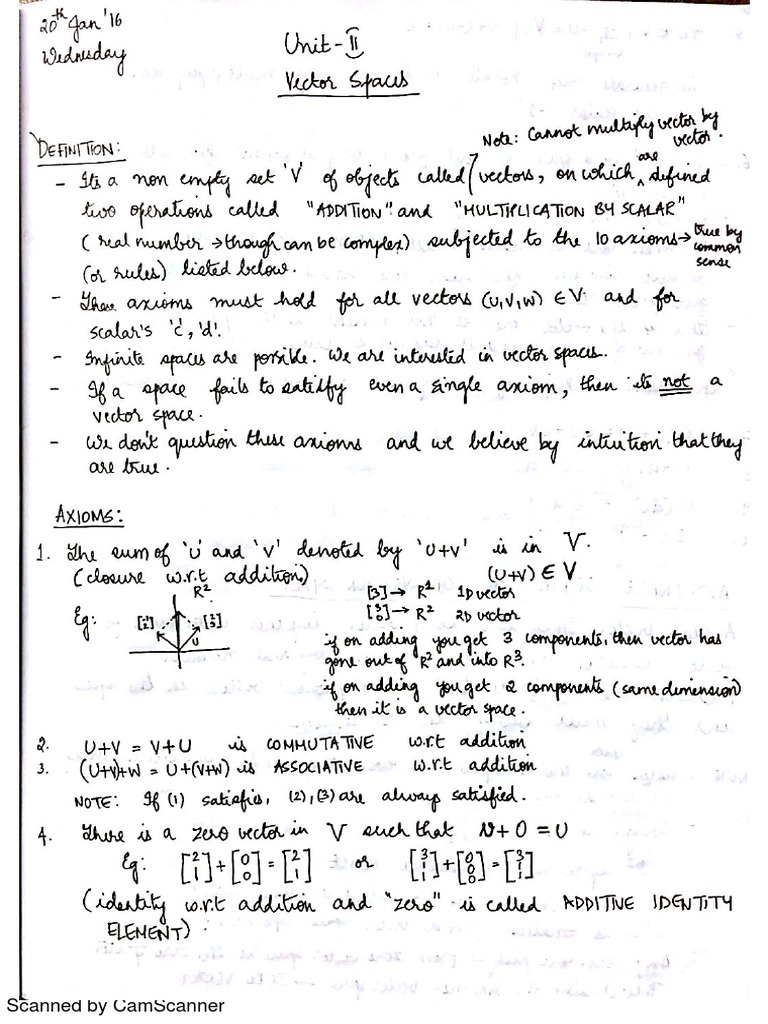 20th Jan '16
Wednesday
Unit-II
Vector Spaces
Note: Cannot multiply vector by
vector.
DEFINITION:
- Its a non empty set 'V' of objects called vectors, on which are defined
two operations called "ADDITION" and "MULTIPLICATION BY SCALAR"
(real number → though can be complex) subjected to the 10 axioms → true by
common
sense
(or rules) listed below.
- These axioms must hold for all vectors (U,V,W) ∈ V and for
scalar's 'c', 'd'.
- Infinite spaces are possible. We are interested in vector spaces.
- If a space fails to satisfy even a single axiom, then its not a
vector space.
- We don't question these axioms and we believe by intuition that they
are true.
AXIOMS:
1. The sum of 'U' and 'V' denoted by 'U+V' is in V.
(closure w.r.t addition) (U+V) ∈ V
Eg: R²
U
[3] → R¹ 1D vector
[3 0] → R² 2D vector
if on adding you get 3 components, then vector has
gone out of R² and into R³.
if on adding you get 2 components (same dimension)
then it is a vector space.
2. U+V = V+U is COMMUTATIVE w.r.t addition
3. (U+V)+W = U+(V+W) is ASSOCIATIVE w.r.t addition
NOTE: If (1) satisfies, (2),(3) are always satisfied.
4. There is a zero vector in V such that U+0 = U
Eg: [2 1] + [0 0] = [2 1] or [3 1 1] + [0 0 0] = [3 1 1]
(identity w.r.t addition and "zero" is called ADDITIVE IDENTITY
ELEMENT).
Scanned by CamScanner